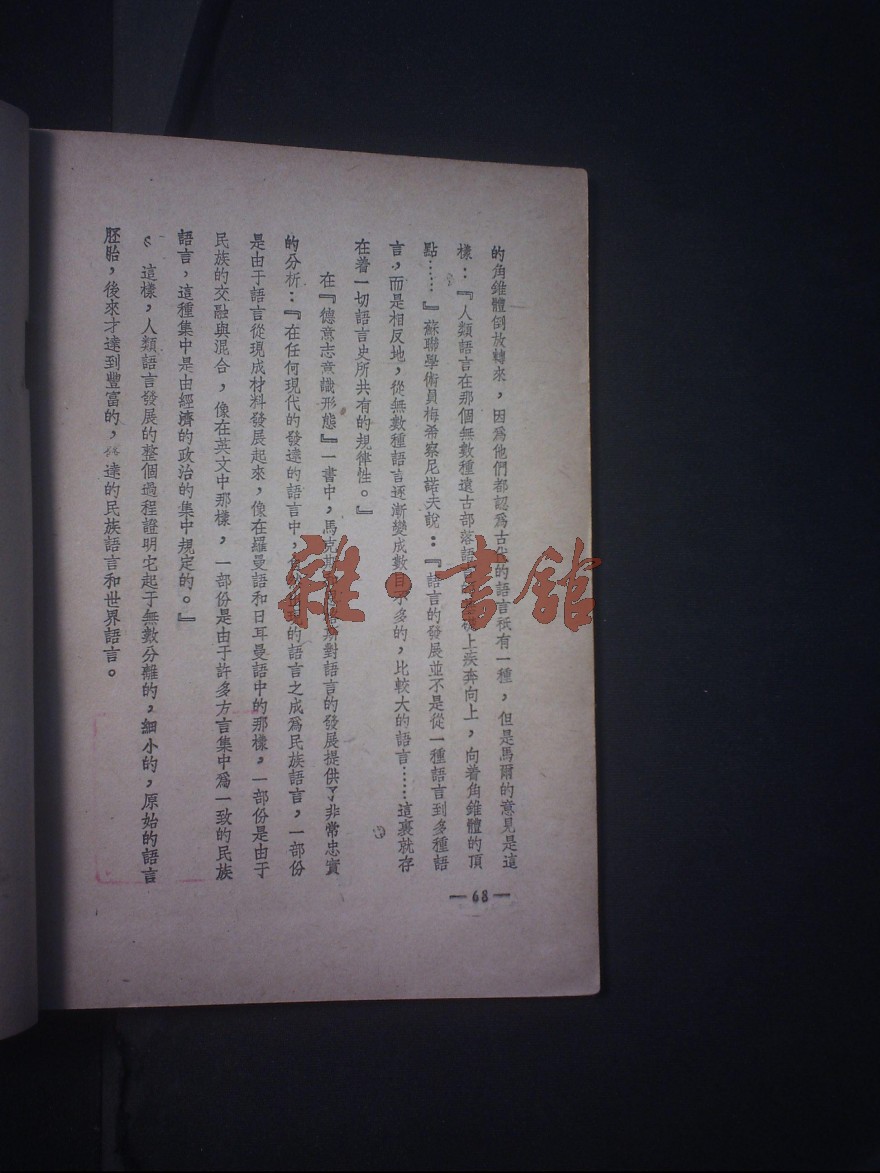 的角錐體倒放轉來，因爲他們都認爲古代的語言祇有一種，但是馬爾的意見是這
樣：『人類語言在那個無數種遠古部落語上疾奔向上，向着角錐體的頂
點……』蘇聯學術員梅希察尼諾夫說：『語言的發展並不是從一種語言到多種語
言，而是相反地，從無數種語言逐漸變成數目不多的，比較大的語言……這裏就存
在着一切語言史所共有的規律性。』
在『德意志意識形態』一書中，馬克斯對語言的發展提供了非常忠實
的分析：『在任何現代的發達的語言中，現的語言之成爲民族語言，一部份
是由于語言從現成材料發展起來，像在羅曼語和日耳曼語中的那樣，一部份是由于
民族的交融與混合，像在英文中那樣，一部份是由于許多方言集中爲一致的民族
語言，這種集中是由經濟的政治的集中規定的。』
這樣，人類語言發展的整個過程證明它起于無數分離的，細小的，原始的語言
胚胎，後來才達到豐富的，達的民族語言和世界語言。
—68—
雜·書館